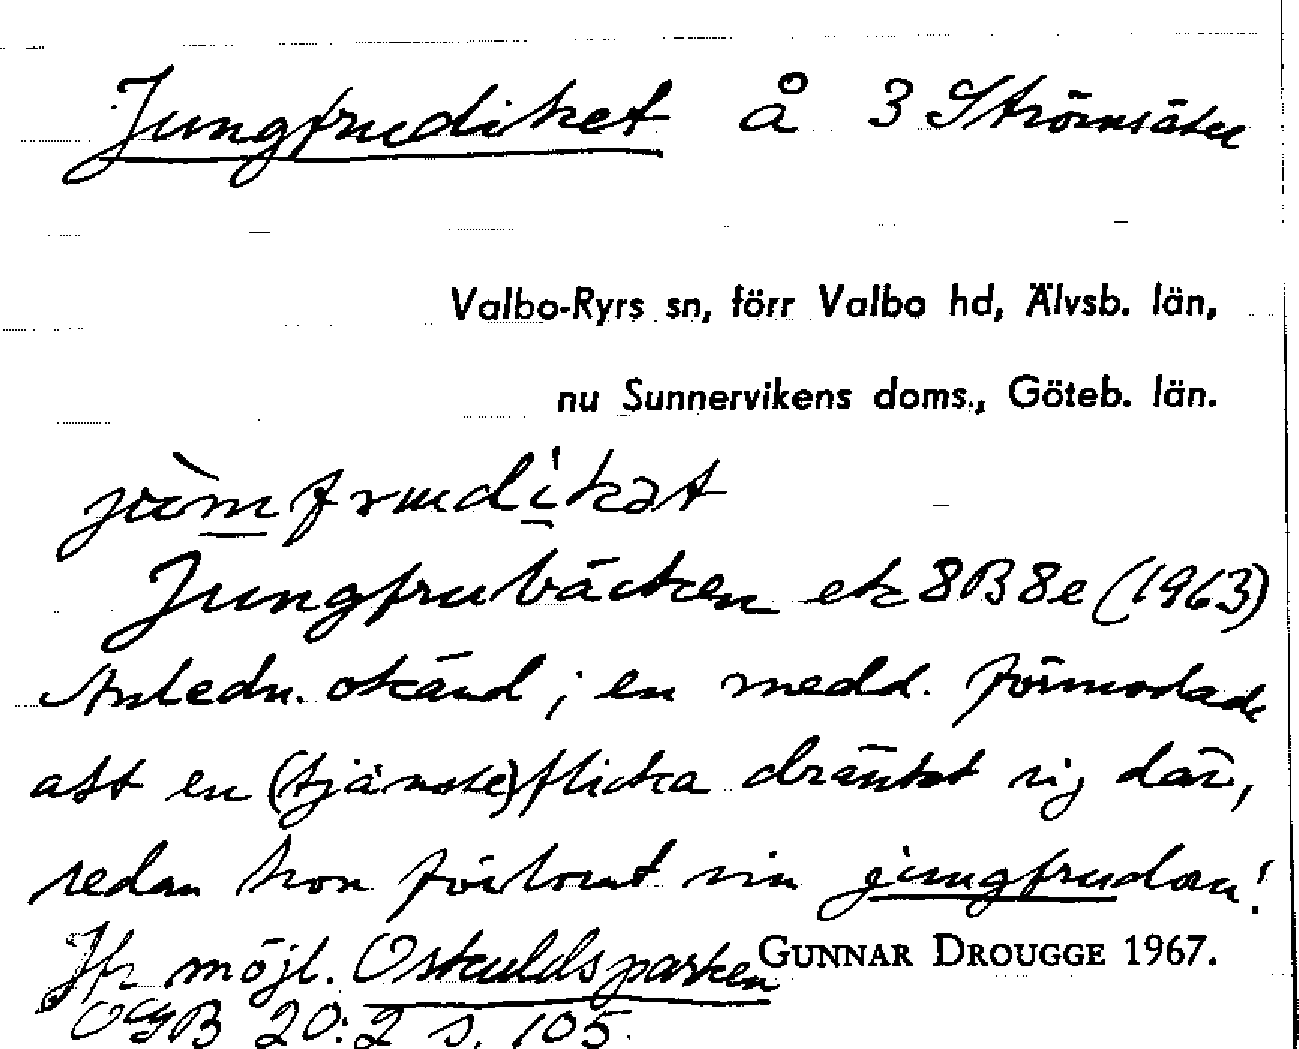 Jungfrudiket å 3 Strömsäter
Valbo-Ryrs sn, förr Valbo hd, Älvsb. län,
nu Sunnervikens doms., Göteb. län.
jùmfrudìkət
Jungfrubäcken ek 8B8e (1963)
Anledn. okänd; en medd. förmodade
att en (tjänste)flicka dränkt sig där,
sedan hon förlorat sin jungfrudom!
Jfr möjl. Oskuldsparken GUNNAR DROUGGE 1967.
OGB 20:2 s. 105.